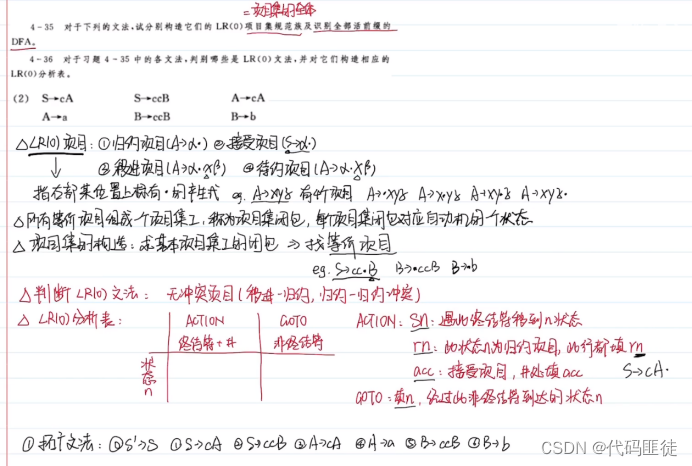 =项目集的全体
4-35 对于下列的文法,试分别构造它们的 LR(0)项目集规范族及识别全部活前缀的
DFA。
4-36 对于习题 4-35 中的各文法,判别哪些是 LR(0)文法,并对它们构造相应的
LR(0)分析表。
(2) S→cA S→ccB A→cA
A→a B→ccB B→b
△LR(0)项目:①归约项目(A→α·) ②接受项目(S→α·)
③移进项目(A→α·Xβ) ④待约项目(A→α·Xβ)
指右部某位置上标有·的产生式 eg. A→xyz 有4个项目 A→·xyz A→x·yz A→xy·z A→xyz·
△所有等价项目组成一个项目集I,称为项目集闭包,每个项目集闭包对应自动机的一个状态
△项目集的构造:求基本项目集I的闭包 ⇒ 找等价项目
eg. S→cc·B B→·ccB B→·b
△判断LR(0)文法: 无冲突项目(移进-归约,归约-归约冲突)
△LR(0)分析表: ACTION GOTO ACTION: Sn:遇此终结符移到n状态
终结符+# 非终结符 rn:此状态n为归约项目,此行都填rn
状态n acc:接受项目,#处填acc S→cA·
GOTO:填n,经过此非终结符到达的状态n
①拓广文法:⓪S'→S ①S→cA ②S→ccB ③A→cA ④A→a ⑤B→ccB ⑥B→b
CSDN @代码匪徒